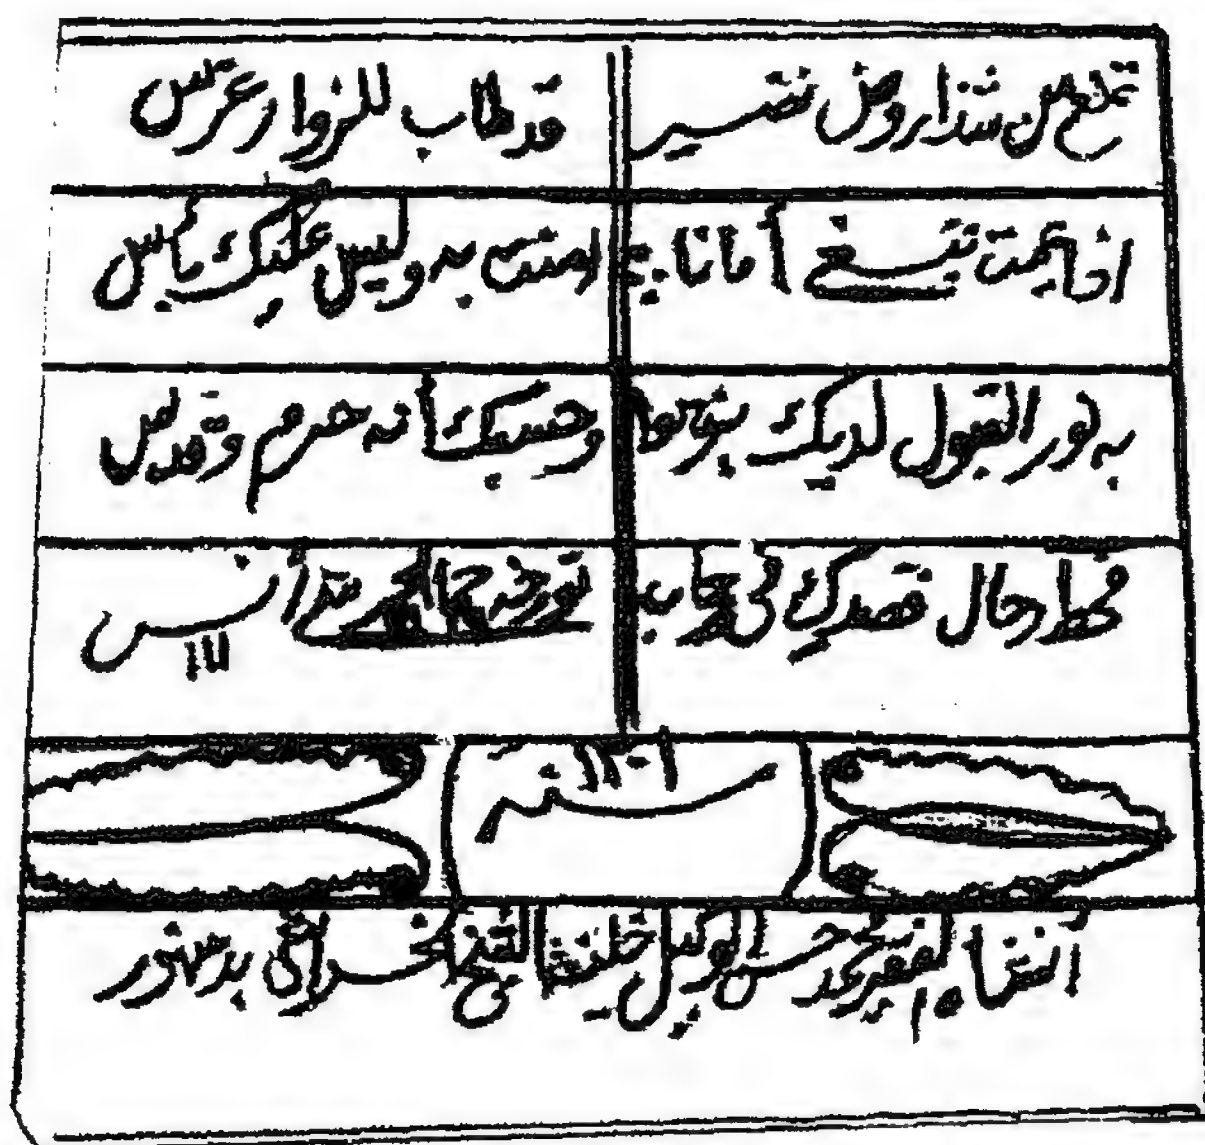 تملى من شذا روض نضير قد طاب للزوار غرس
اذا يممت تبتغي أمانا أمنت به وليس عليك بأس
به نور القبول لديك وحسبك أنه حرم وقدس
فحط رحال قصدك في رحاب تورخه حما أنس
١١١
سنه
أنشاه الفقير محمد حسن الوكيل خليفة الشيخ بدمنهور